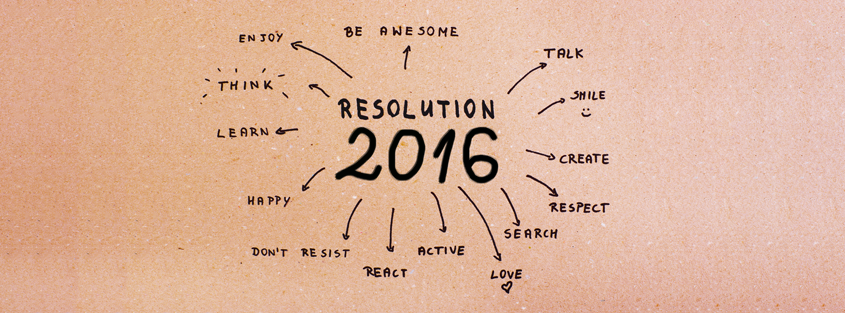 ENJOY
BE AWESOME
TALK
THINK
SMILE
RESOLUTION
2016
LEARN
CREATE
HAPPY
RESPECT
SEARCH
DON'T RESIST
ACTIVE
REACT
LOVE